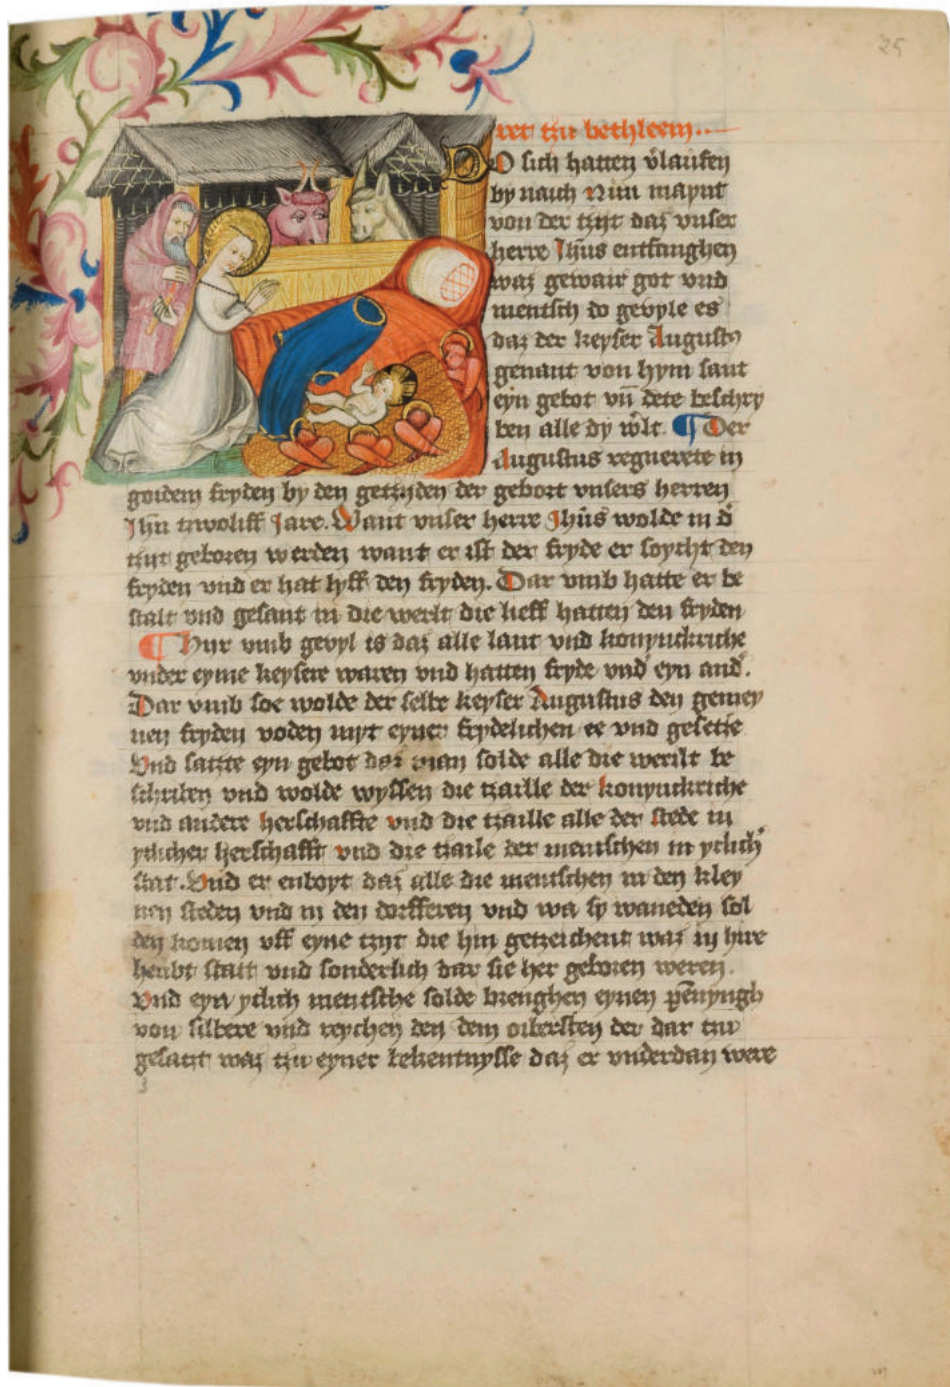 25
ret tzu bethleem
DO sich hatten v̓lauffen
by naich Nun maynt
von der tzijt daz vnser
herre Jhūs entfanghen
waz gewair got vnd
mentsch do gevyle es
daz der keyser Augustꝰ
genant von hym sant
eyn gebot vn̄ dete beschry
ben alle dy w̓lt. ¶ Der
Augustus regnerete in
goidem fryden by den getzijden der gebort vnsers herren
Jhū tzwoliff Jare. Want vnser herre Jhūs wolde in d̓
tzijt geboren werden want er ist der fryde er soycht den
fryden vnd er hat lyff den fryden. Dar vmb hatte er be
stalt vnd gesant in die werlt die lieff hatten den fryden
¶ Hijr vmb gevyl is daz alle lant vnd konynckriche
vnder eyme keysere waren vnd hatten fryde vnd eyn and̓.
Dar vmb soe wolde der selbe keyser Augustus den gemey
nen fryden voden myt eyner frydelichen ee vnd gesetze
Vnd satzte eyn gebot daz man solde alle die werilt be
schriben vnd wolde wyssen die tzaille der konynckriche
vnd andere herschaffte vnd die tzaille alle der stede in
ytlicher herschafft vnd die tzaile der mentschen in ytlich̓
stat. Vnd er enboyt daz alle die mentschen in den kley
nen steden vnd in den dorfferen vnd wa sy waneden sol
den komen vff eyne tzijt die hin getzeichent waz in hire
heubt statt vnd sonderlich dar sie her geboren weren.
Vnd eyn ytlich mentsche solde brenghen eynen pēnyngh
von silbere vnd reychen den dem oibersten der dar tzu
gesatzt waz tzu eyner bekentnysse daz er vnderdan were